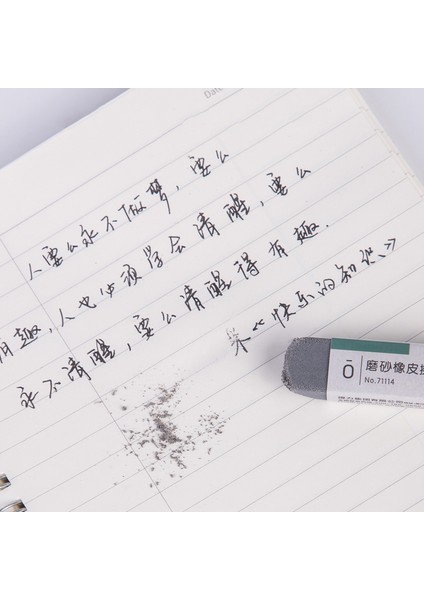 Date
人要么永不做梦，要么
有趣，人也必须学会清醒，要么
永不清醒，要么清醒得有趣.
采《快乐的知识》
ō
磨砂橡皮擦
No.71114